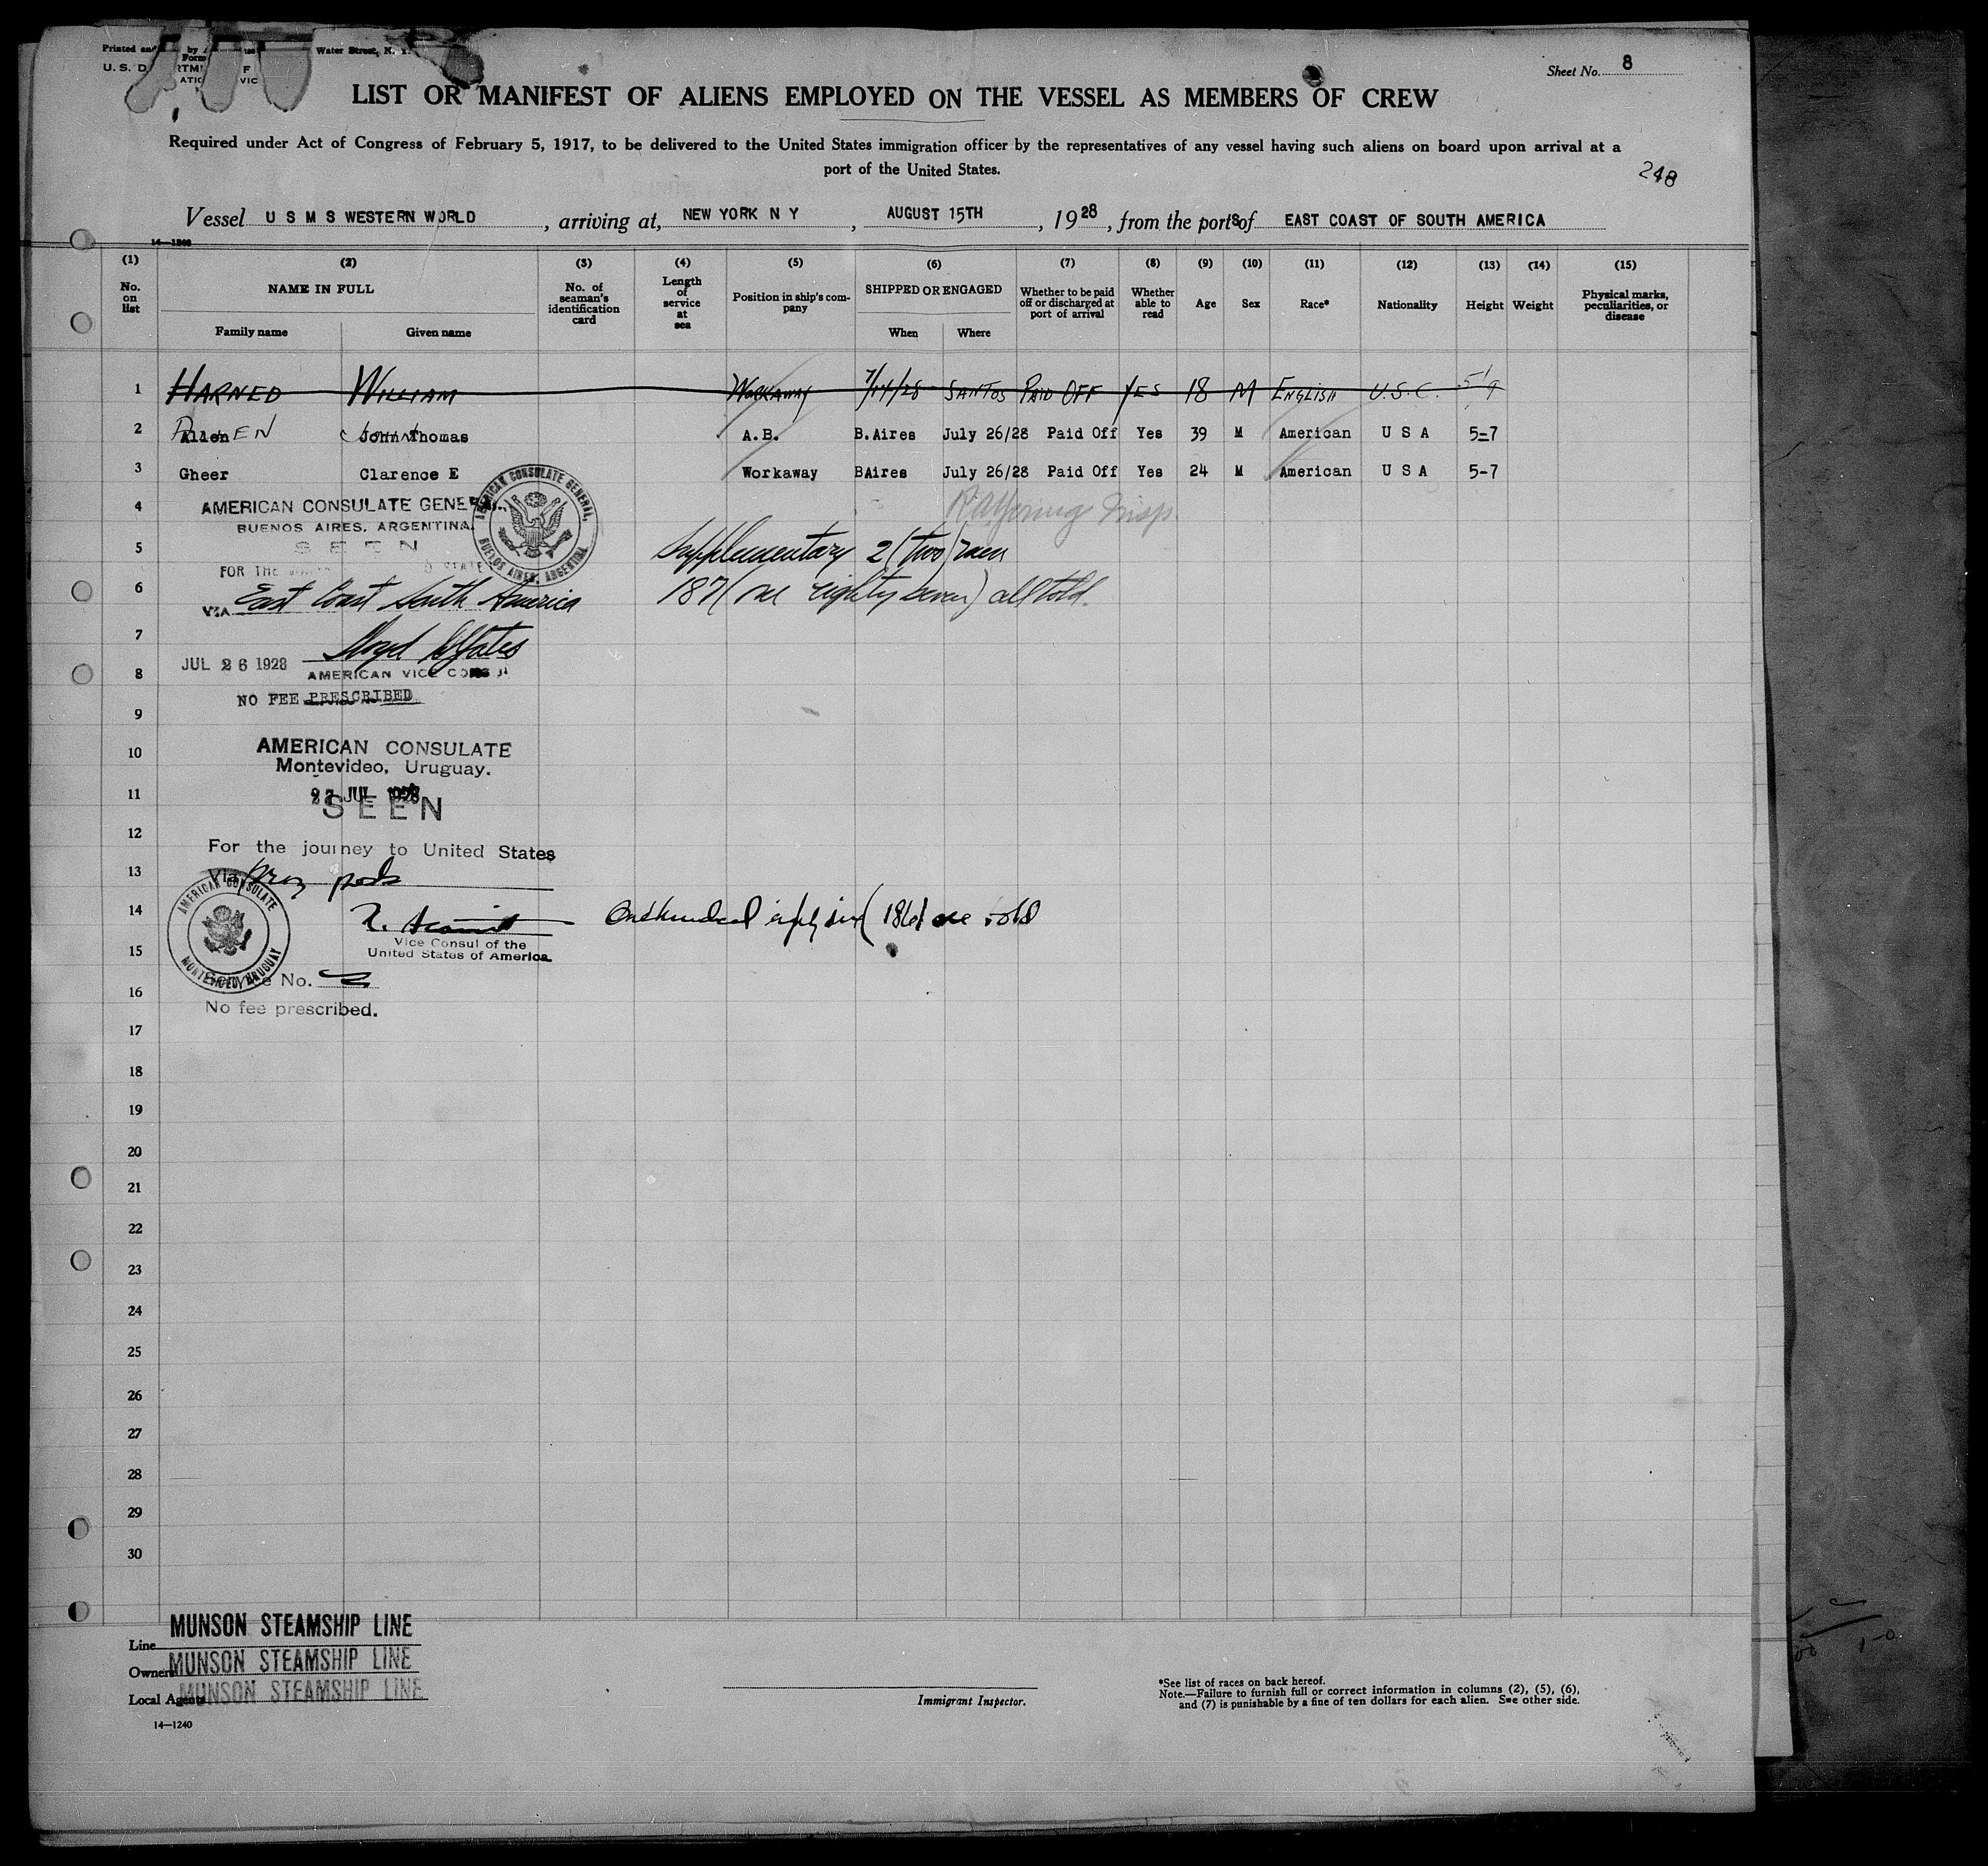 Printed and by Water Street, N. Y.
Form
U. S. D
Sheet No. 8
LIST OR MANIFEST OF ALIENS EMPLOYED ON THE VESSEL AS MEMBERS OF CREW
Required under Act of Congress of February 5, 1917, to be delivered to the United States immigration officer by the representatives of any vessel having such aliens on board upon arrival at a
port of the United States.
248
Vessel U S M S WESTERN WORLD, arriving at, NEW YORK N Y, AUGUST 15TH, 1928, from the ports of EAST COAST OF SOUTH AMERICA
14—1240
(1) (2) (3) (4) (5) (6) (7) (8) (9) (10) (11) (12) (13) (14) (15)
No. on list NAME IN FULL Family name Given name No. of seaman's identification card Length of service at sea Position in ship's company SHIPPED OR ENGAGED When Where Whether to be paid off or discharged at port of arrival Whether able to read Age Sex Race* Nationality Height Weight Physical marks, peculiarities, or disease
1 HARNED WILLIAM WORKAWAY 7/14/28 SANTOS PAID OFF YES 18 M ENGLISH U.S.C. 5'9
2 Allen John Thomas A.B. B.Aires July 26/28 Paid Off Yes 39 M American U S A 5-7
3 Gheer Clarence E Workaway BAires July 26/28 Paid Off Yes 24 M American U S A 5-7
4 AMERICAN CONSULATE GENERAL,
BUENOS AIRES, ARGENTINA.
AMERICAN CONSULATE GENERAL, BUENOS AIRES, ARGENTINA
5 SEEN Supplementary 2 (two) men
FOR THE STATE
6 VIA East Coast South America 187 (one eighty seven) all told.
7
JUL 26 1928
8 AMERICAN VICE CONSUL
NO FEE PRESCRIBED
9
10 AMERICAN CONSULATE
Montevideo, Uruguay.
11 JUL 1928
SEEN
12
For the journey to United States
13 Via
AMERICAN CONSULATE MONTEVIDEO, URUGUAY
14 One hundred eighty six (186) all told
Vice Consul of the
15 United States of America
Service No.
16
No fee prescribed.
17
18
19
20
21
22
23
24
25
26
27
28
29
30
Line MUNSON STEAMSHIP LINE
Owners MUNSON STEAMSHIP LINE
Local Agents MUNSON STEAMSHIP LINE
Immigrant Inspector.
*See list of races on back hereof.
Note.—Failure to furnish full or correct information in columns (2), (5), (6),
and (7) is punishable by a fine of ten dollars for each alien. See other side.
14—1240